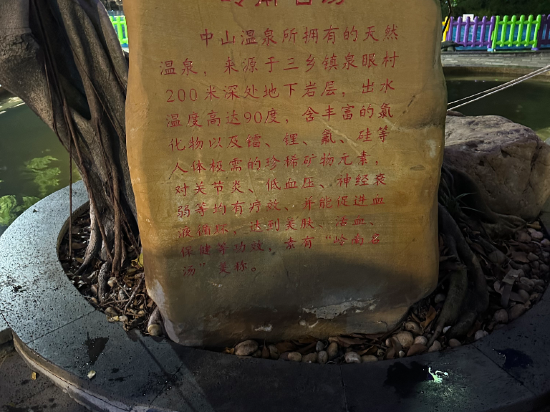 岭南名汤
中山温泉所拥有的天然
温泉，来源于三乡镇泉眼村
200米深处地下岩层，出水
温度高达90度，含丰富的氡
化物以及镭、锂、氟、硅等
人体极需的珍稀矿物元素，
对关节炎、低血压、神经衰
弱等均有疗效，并能促进血
液循环，达到美肤、活血、
保健等功效，素有“岭南名
汤”美称。